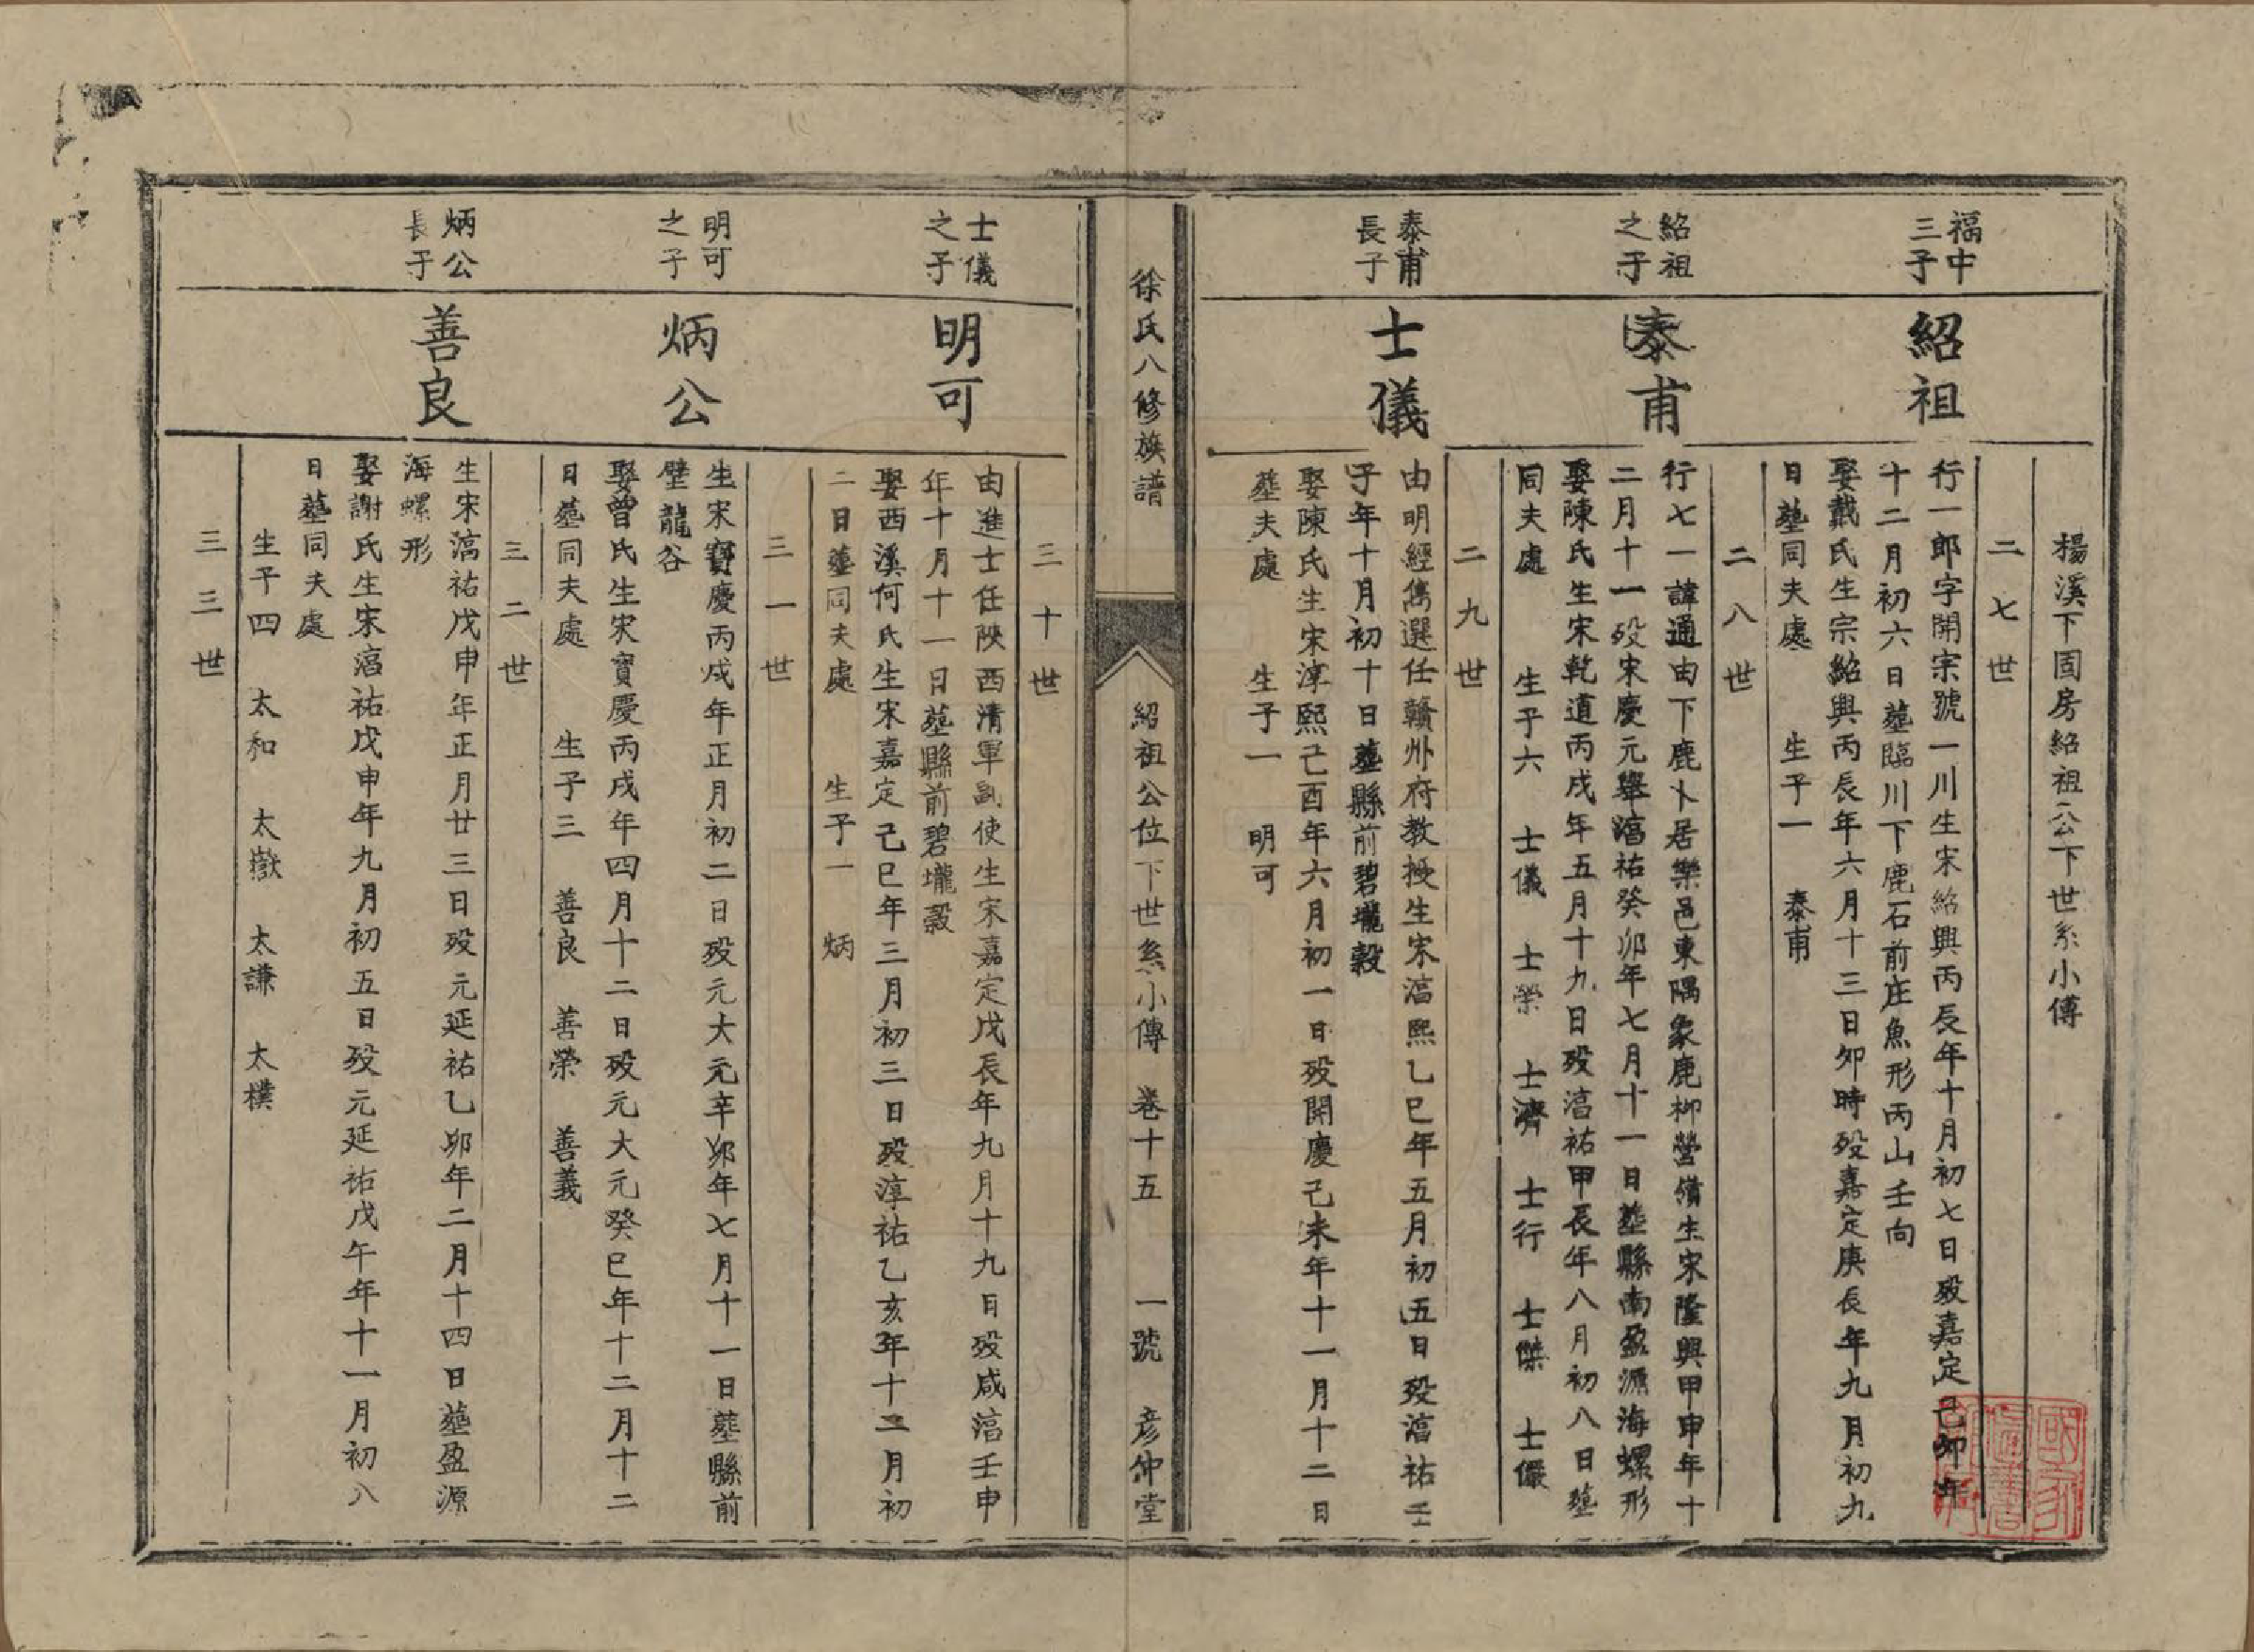 楊溪下固房紹祖公下世系小傳
二七世
福中
三子
紹祖
行一郎字開宗號一川生宋紹興丙辰年十月初七日歿嘉定己卯年
十二月初六日塟臨川下鹿石前庄魚形丙山壬向
娶戴氏生宗紹興丙辰年六月十三日卯時歿嘉定庚辰年九月初九
日塟同夫處 生子一 泰甫
二八世
紹祖
之子
泰甫
行七一諱通由下鹿卜居樂邑東隅象鹿柳營備生宋隆興甲申年十
二月十一歿宋慶元舉淳祐癸卯年七月十一日塟縣南盈源海螺形
娶陳氏生宋乾道丙戌年五月十九日歿淳祐甲辰年八月初八日塟
同夫處 生子六 士儀 士榮 士濟 士行 士傑 士儼
二九世
泰甫
長子
士儀
由明經雋選任贛州府教授生宋淳熙乙巳年五月初五日歿淳祐壬
子年十月初十日塟縣前碧壠彀
娶陳氏生宋淳熙己酉年六月初一日歿開慶己未年十一月十二日
塟夫處 生子一 明可
徐氏八修族譜 紹祖公位下世系小傳 卷十五 一號 彦仲堂
三十世
士儀
之子
明可
由進士任陝西清軍副使生宋嘉定戊辰年九月十九日歿咸淳壬申
年十月十一日塟縣前碧壠彀
娶西溪何氏生宋嘉定己巳年三月初三日歿淳祐乙亥年十二月初
二日塟同夫處 生子一 炳
三一世
明可
之子
炳公
生宋寶慶丙戌年正月初二日歿元大元辛卯年七月十一日塟縣前
壁龍谷
娶曾氏生宋寶慶丙戌年四月十二日歿元大元癸巳年十二月十二
日塟同夫處 生子三 善良 善榮 善義
三二世
炳公
長子
善良
生宋淳祐戊申年正月廿三日歿元延祐乙卯年二月十四日塟盈源
海螺形
娶謝氏生宋淳祐戊申年九月初五日歿元延祐戊午年十一月初八
日塟同夫處
生子四 太和 太嶽 太謙 太樸
三三世